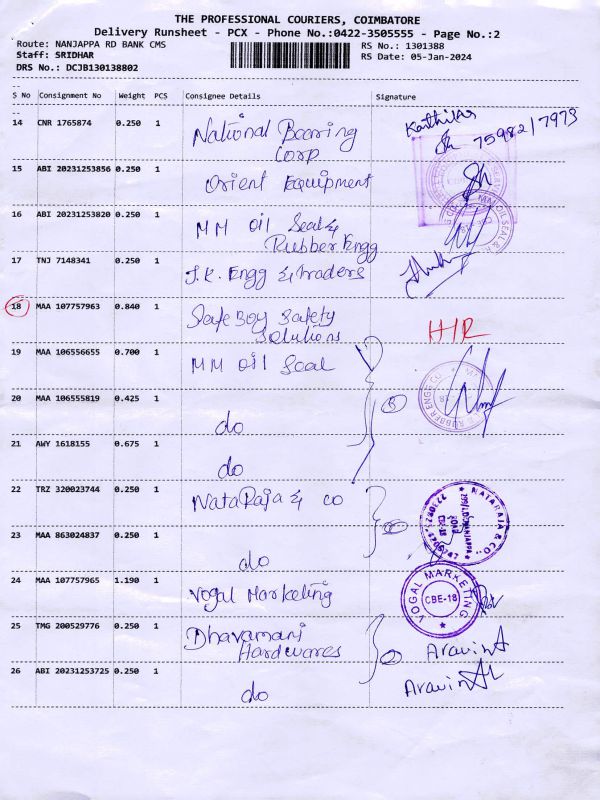 THE PROFESSIONAL COURIERS, COIMBATORE
Delivery Runsheet - PCX - Phone No.:0422-3505555 - Page No.:2
Route: NANJAPPA RD BANK CMS
RS No.: 1301388
Staff: SRIDHAR
RS Date: 05-Jan-2024
DRS No.: DCJB130138802
S No Consignment No Weight PCS Consignee Details Signature
14 CNR 1765874 0.250 1 National Bearing Corp
75982/7973
15 ABI 20231253856 0.250 1 Orient Equipment
16 ABI 20231253820 0.250 1 MM Oil Seal & Rubber Engg
17 TNJ 7148341 0.250 1 J.K. Engg & traders
18 MAA 107757963 0.840 1 Safe Boy Safety Solutions
19 MAA 106556655 0.700 1 MM Oil Seal
20 MAA 106555819 0.425 1 do
3
21 AWY 1618155 0.675 1 do
22 TRZ 320023744 0.250 1 NataRaja & co
NATARAJA & CO.,
23 MAA 863024837 0.250 1 do
24 MAA 107757965 1.190 1 Vogal Marketing
VOGAL MARKETING
CBE-18
25 TMG 200529776 0.250 1 Dhavamani Hardwares
2
Aravind
26 ABI 20231253725 0.250 1 do